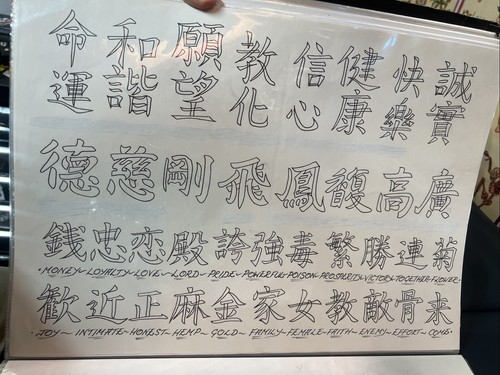 命 和 願 教 信 健 快 誠
運 諧 望 化 心 康 樂 實
德 慈 剛 飛 鳳 馥 高 廣
錢 忠 恋 殿 誇 強 毒 繁 勝 連 菊
·MONEY~LOYALTY~LOVE~LORD~PRIDE~POWERFUL~POISON~PROSPERITY~VICTORY~TOGETHER~FLOWER·
歡 近 正 麻 金 家 女 教 敵 骨 来
·JOY~INTIMATE~HONEST~HEMP~GOLD~FAMILY~FEMALE~FAITH~ENEMY~EFFORT~COME·